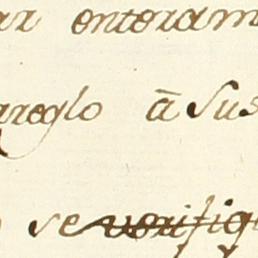 ar enteram
arreglo à Sus
se verifiq